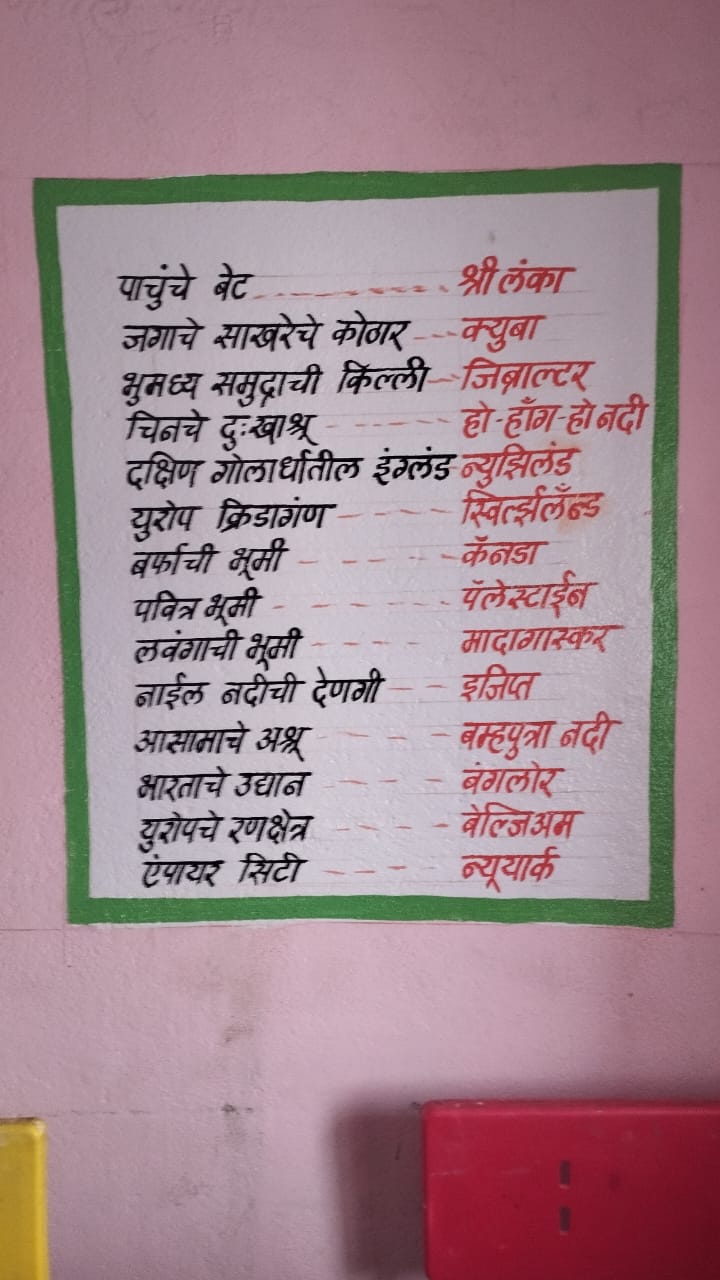 पाचुंचे बेट ............. श्री लंका
जगाचे साखरेचे कोठार --- क्युबा
भुमध्य समुद्राची किल्ली -- जिब्राल्टर
चिनचे दुःखाश्रू ------ हो-हाँग-हो नदी
दक्षिण गोलार्धातील इंग्लंड - न्युझिलंड
युरोप क्रिडागंण ---- स्वित्झर्लँन्ड
बर्फाची भूमी ----- कॅनडा
पवित्र भूमी ----- पॅलेस्टाईन
लवंगाची भूमी ---- मादागास्कर
नाईल नदीची देणगी -- इजिप्त
आसामाचे अश्रू ---- बम्हपुत्रा नदी
भारताचे उद्यान ---- बंगलोर
युरोपचे रणक्षेत्र ---- बेल्जिअम
एंपायर सिटी ---- न्यूयार्क